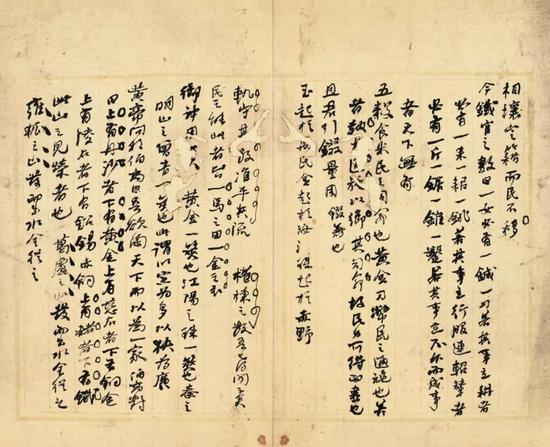 相壤定籍而民不移
今鐵官之數曰一女必有一鍼一刀若其事立耕者
必有一耒一耜一銚若其事立行服連軺輂者
必有一斤一鋸一錐一鑿若其事立不尔而成事
者天下無有
五穀食米民之司命也黃金刀幣民之通施也故善
者執其通施以御其司命故民力可得而盡也
且君引錣量用
玉起於禺氏金起於汝漢珠起於赤野
軌守其數准平其流 之數吾已得聞之矣
民之能此者皆一馬之田一金之衣
御神用寶 黃金一筴也江陽之珠一筴也秦之
明山之曾青一筴也此謂以寡為多以狹為廣
黃帝問於伯高曰吾欲陶天下而以為一家 伯高對
曰上有丹沙者下有黃金上有慈石者下有銅金
上有陵石者下有鉛錫赤銅 上有赭者下有鐵
此山之見榮者也 葛盧之山發而出水金從之
雍狐之山發而出水金從之